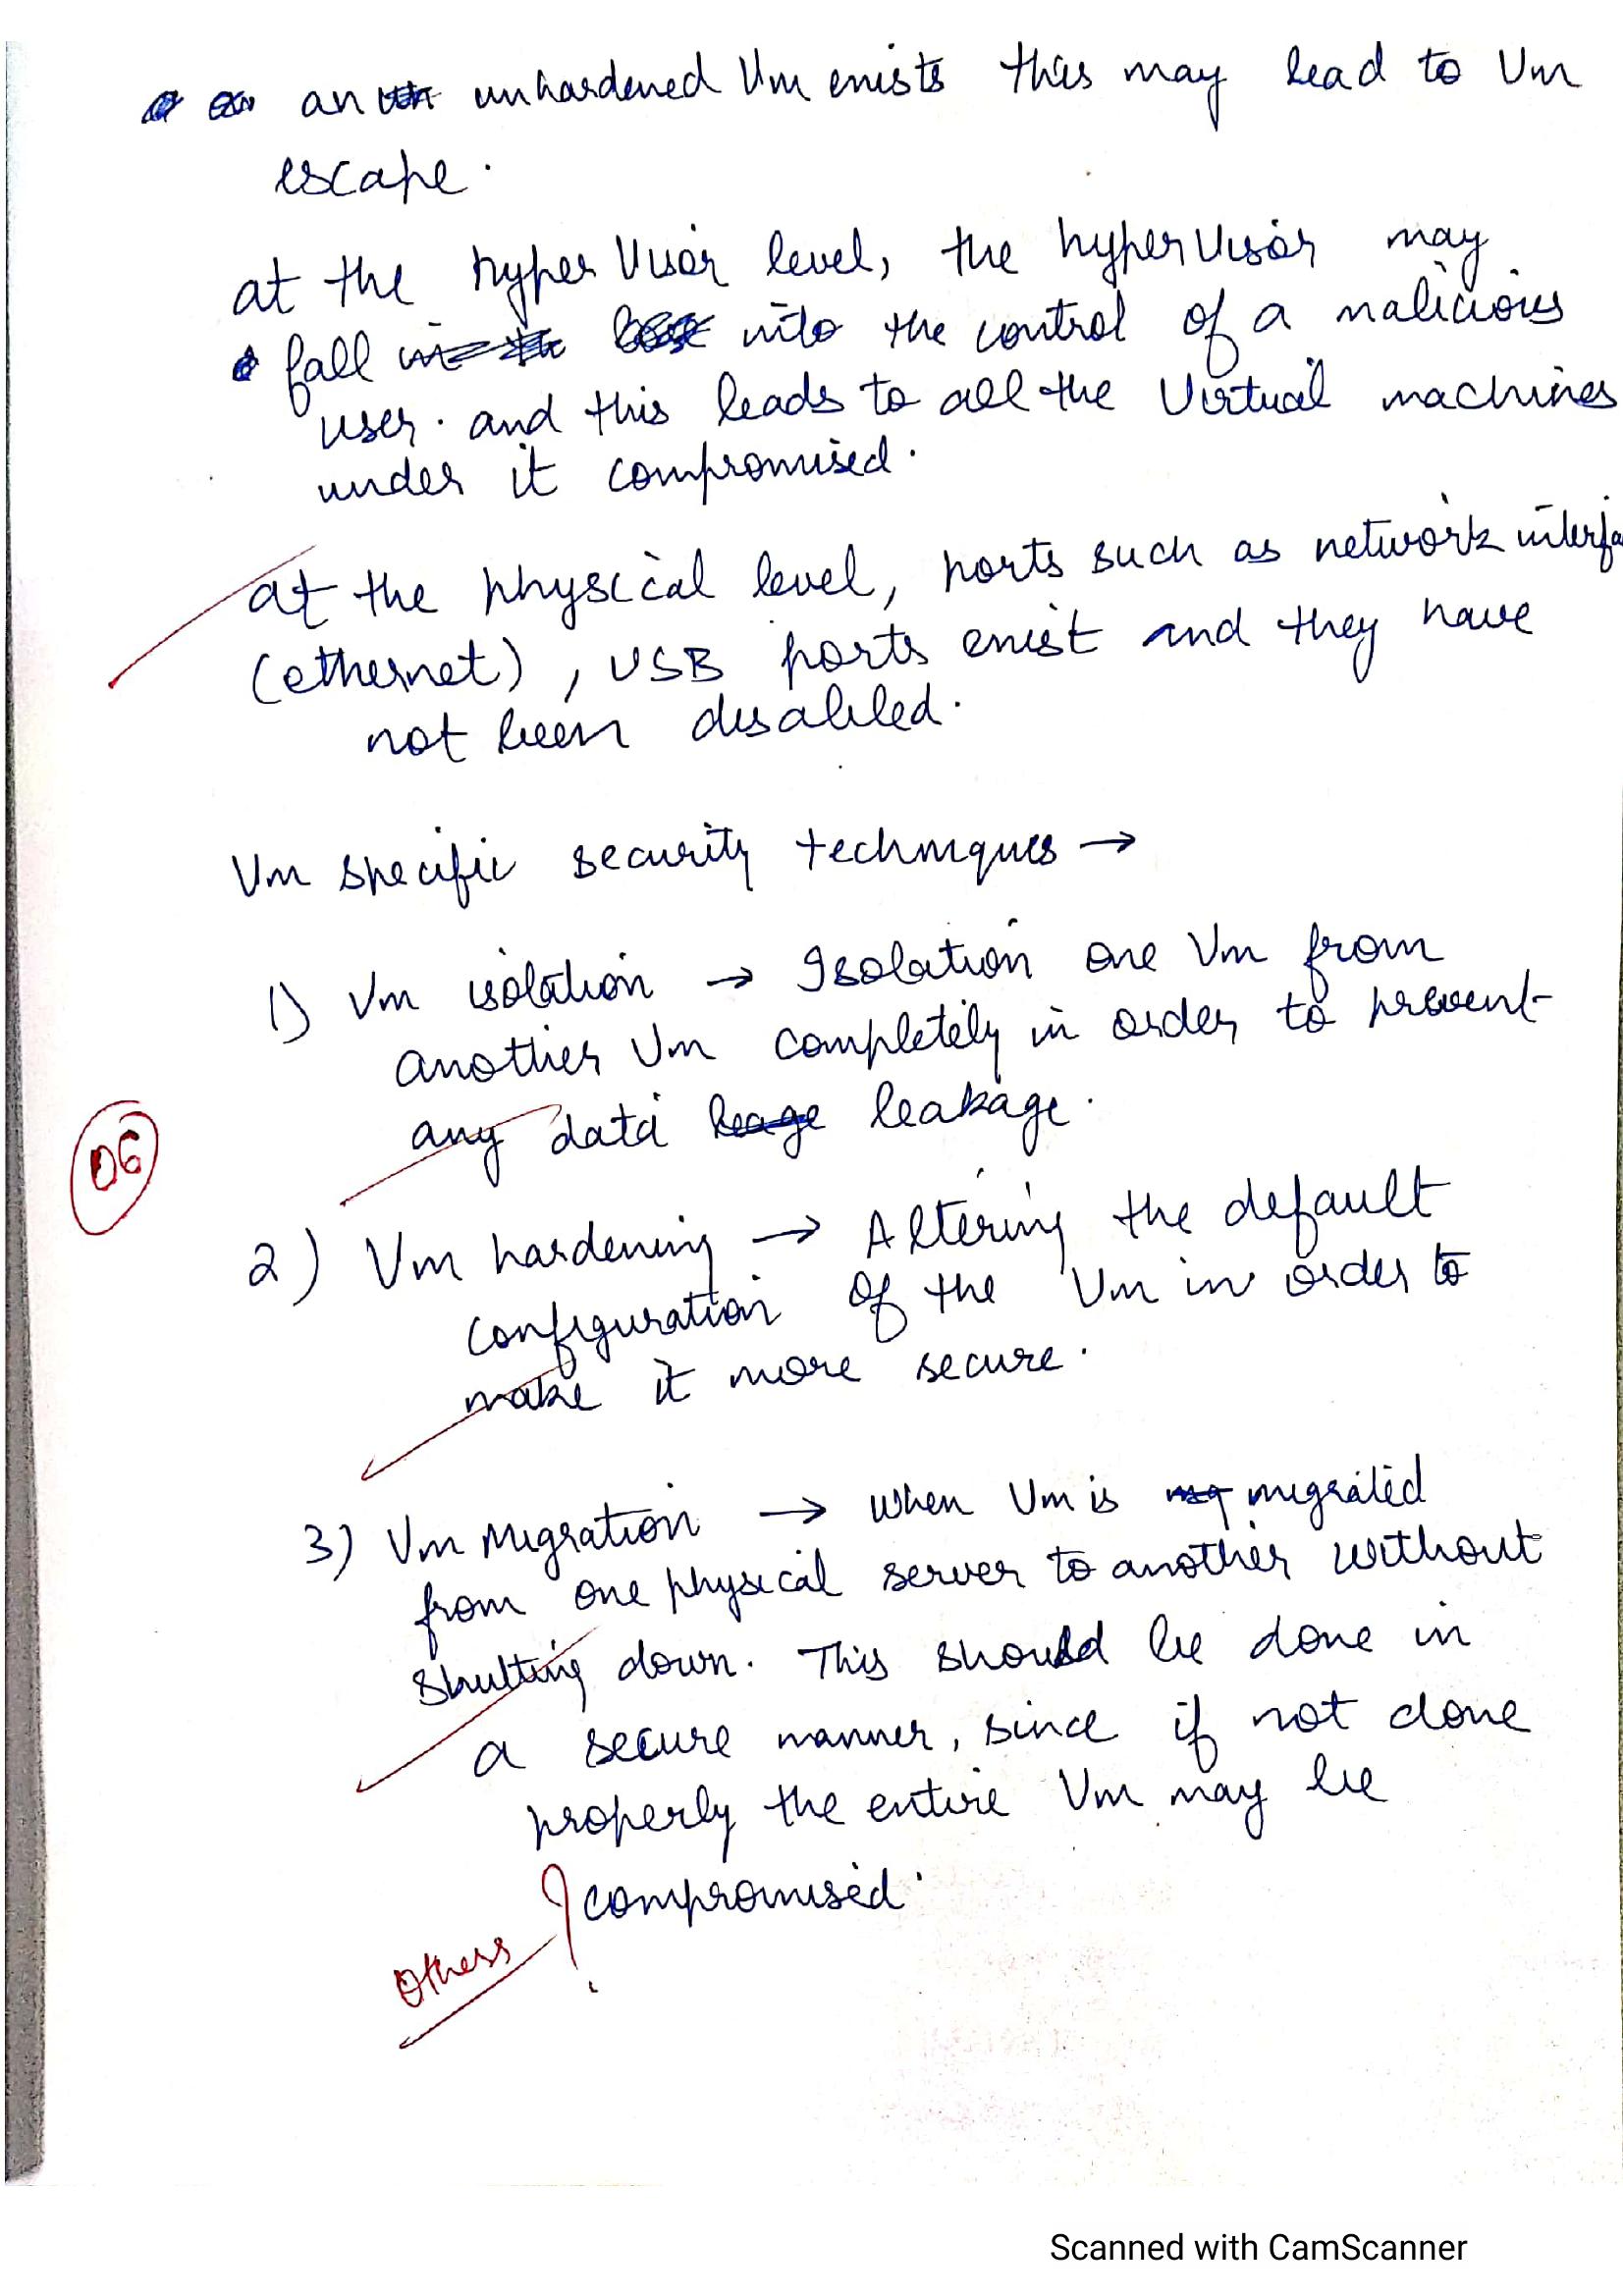 an unhardened Vm exists this may lead to Vm
escape.
at the hyper Visor level, the hyper Visor may
fall into the control of a malicious
user. and this leads to all the Virtual machines
under it compromised.
at the physical level, ports such as network interfa
(ethernet), USB ports exist and they have
not been disabled.
Vm specific security techniques →
1) Vm isolation → Isolation one Vm from
another Vm completely in order to prevent
any data leakage.
06
2) Vm hardening → Altering the default
configuration of the Vm in order to
make it more secure.
3) Vm Migration → when Vm is migrated
from one physical server to another without
shutting down. This should be done in
a secure manner, since if not done
properly the entire Vm may be
compromised.
Others ?
Scanned with CamScanner